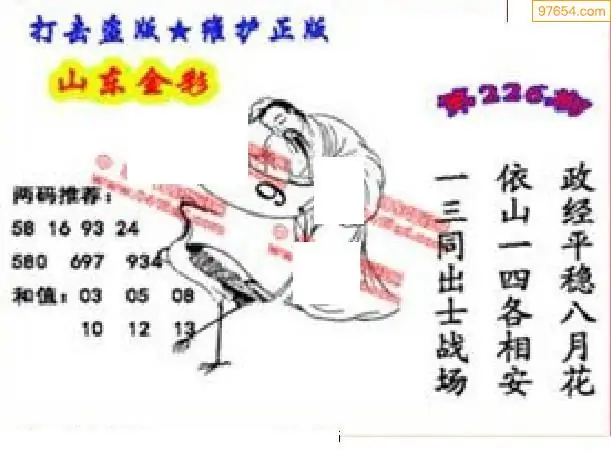 97654.com
打击盗版★维护正版
山东金彩
第226期
两码推荐：
58 16 93 24
580 697 934
和值：03 05 08
10 12 13
6
政经平稳八月花
依山一四各相安
一三同出士战场